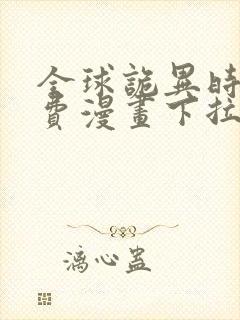 全球詭異時
費漫畫下拉
漓心蛊